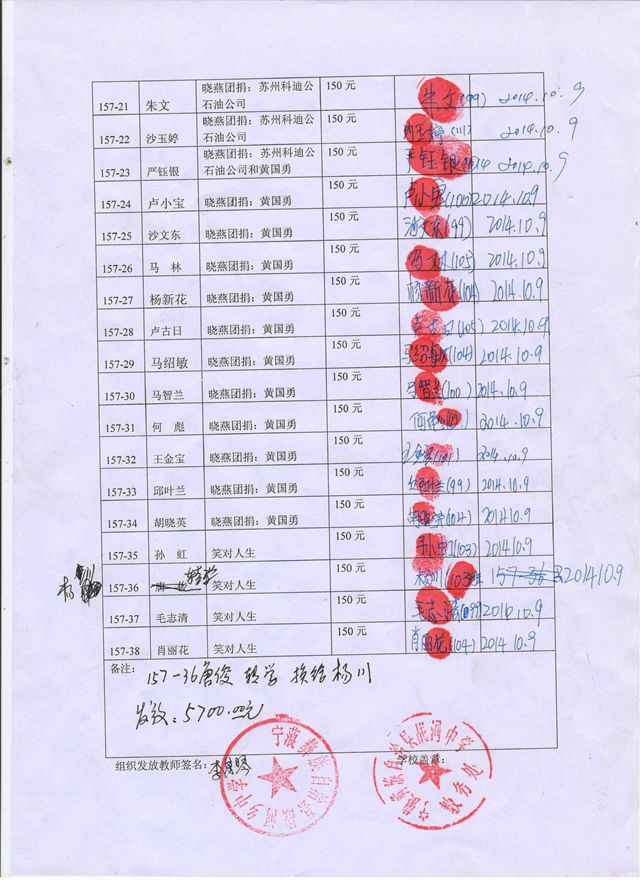 157-21 朱文 晓燕团捐：苏州科迪公 150 元 朱文(99) 2014.10.9
石油公司
157-22 沙玉婷 晓燕团捐：苏州科迪公 150 元 沙玉婷(111) 2014.10.9
石油公司
157-23 严钰银 晓燕团捐：苏州科迪公 150 元 严钰银 2014.10.9
石油公司和黄国勇
157-24 卢小宝 晓燕团捐：黄国勇 150 元 卢小宝(100) 2014.10.9
157-25 沙文东 晓燕团捐：黄国勇 150 元 沙文东(99) 2014.10.9
157-26 马 林 晓燕团捐：黄国勇 150 元 马林(105) 2014.10.9
157-27 杨新花 晓燕团捐：黄国勇 150 元 杨新花(104) 2014.10.9
157-28 卢古日 晓燕团捐：黄国勇 150 元 卢古日(105) 2014.10.9
157-29 马绍敏 晓燕团捐：黄国勇 150 元 马绍敏(104) 2014.10.9
157-30 马智兰 晓燕团捐：黄国勇 150 元 马智兰(100) 2014.10.9
157-31 何 彪 晓燕团捐：黄国勇 150 元 何彪 2014.10.9
157-32 王金宝 晓燕团捐：黄国勇 150 元 王金宝(101) 2014.10.9
157-33 邱叶兰 晓燕团捐：黄国勇 150 元 邱叶兰(99) 2014.10.9
157-34 胡晓英 晓燕团捐：黄国勇 150 元 胡晓英 2014.10.9
157-35 孙 虹 笑对人生 150 元 孙虹(103) 2014.10.9
杨川 157-36 唐俊 转学 笑对人生 150 元 杨川(103) 157-36 2014.10.9
157-37 毛志清 笑对人生 150 元 毛志清(99) 2014.10.9
157-38 肖丽花 笑对人生 150 元 肖丽花(104) 2014.10.9
备注：
157-36唐俊 转学 换给杨川
发放：5700.00元
组织发放教师签名： 学校盖章：
宁蒗彝族自治县战河乡中学
宁蒗彝族自治县战河中学
教务处